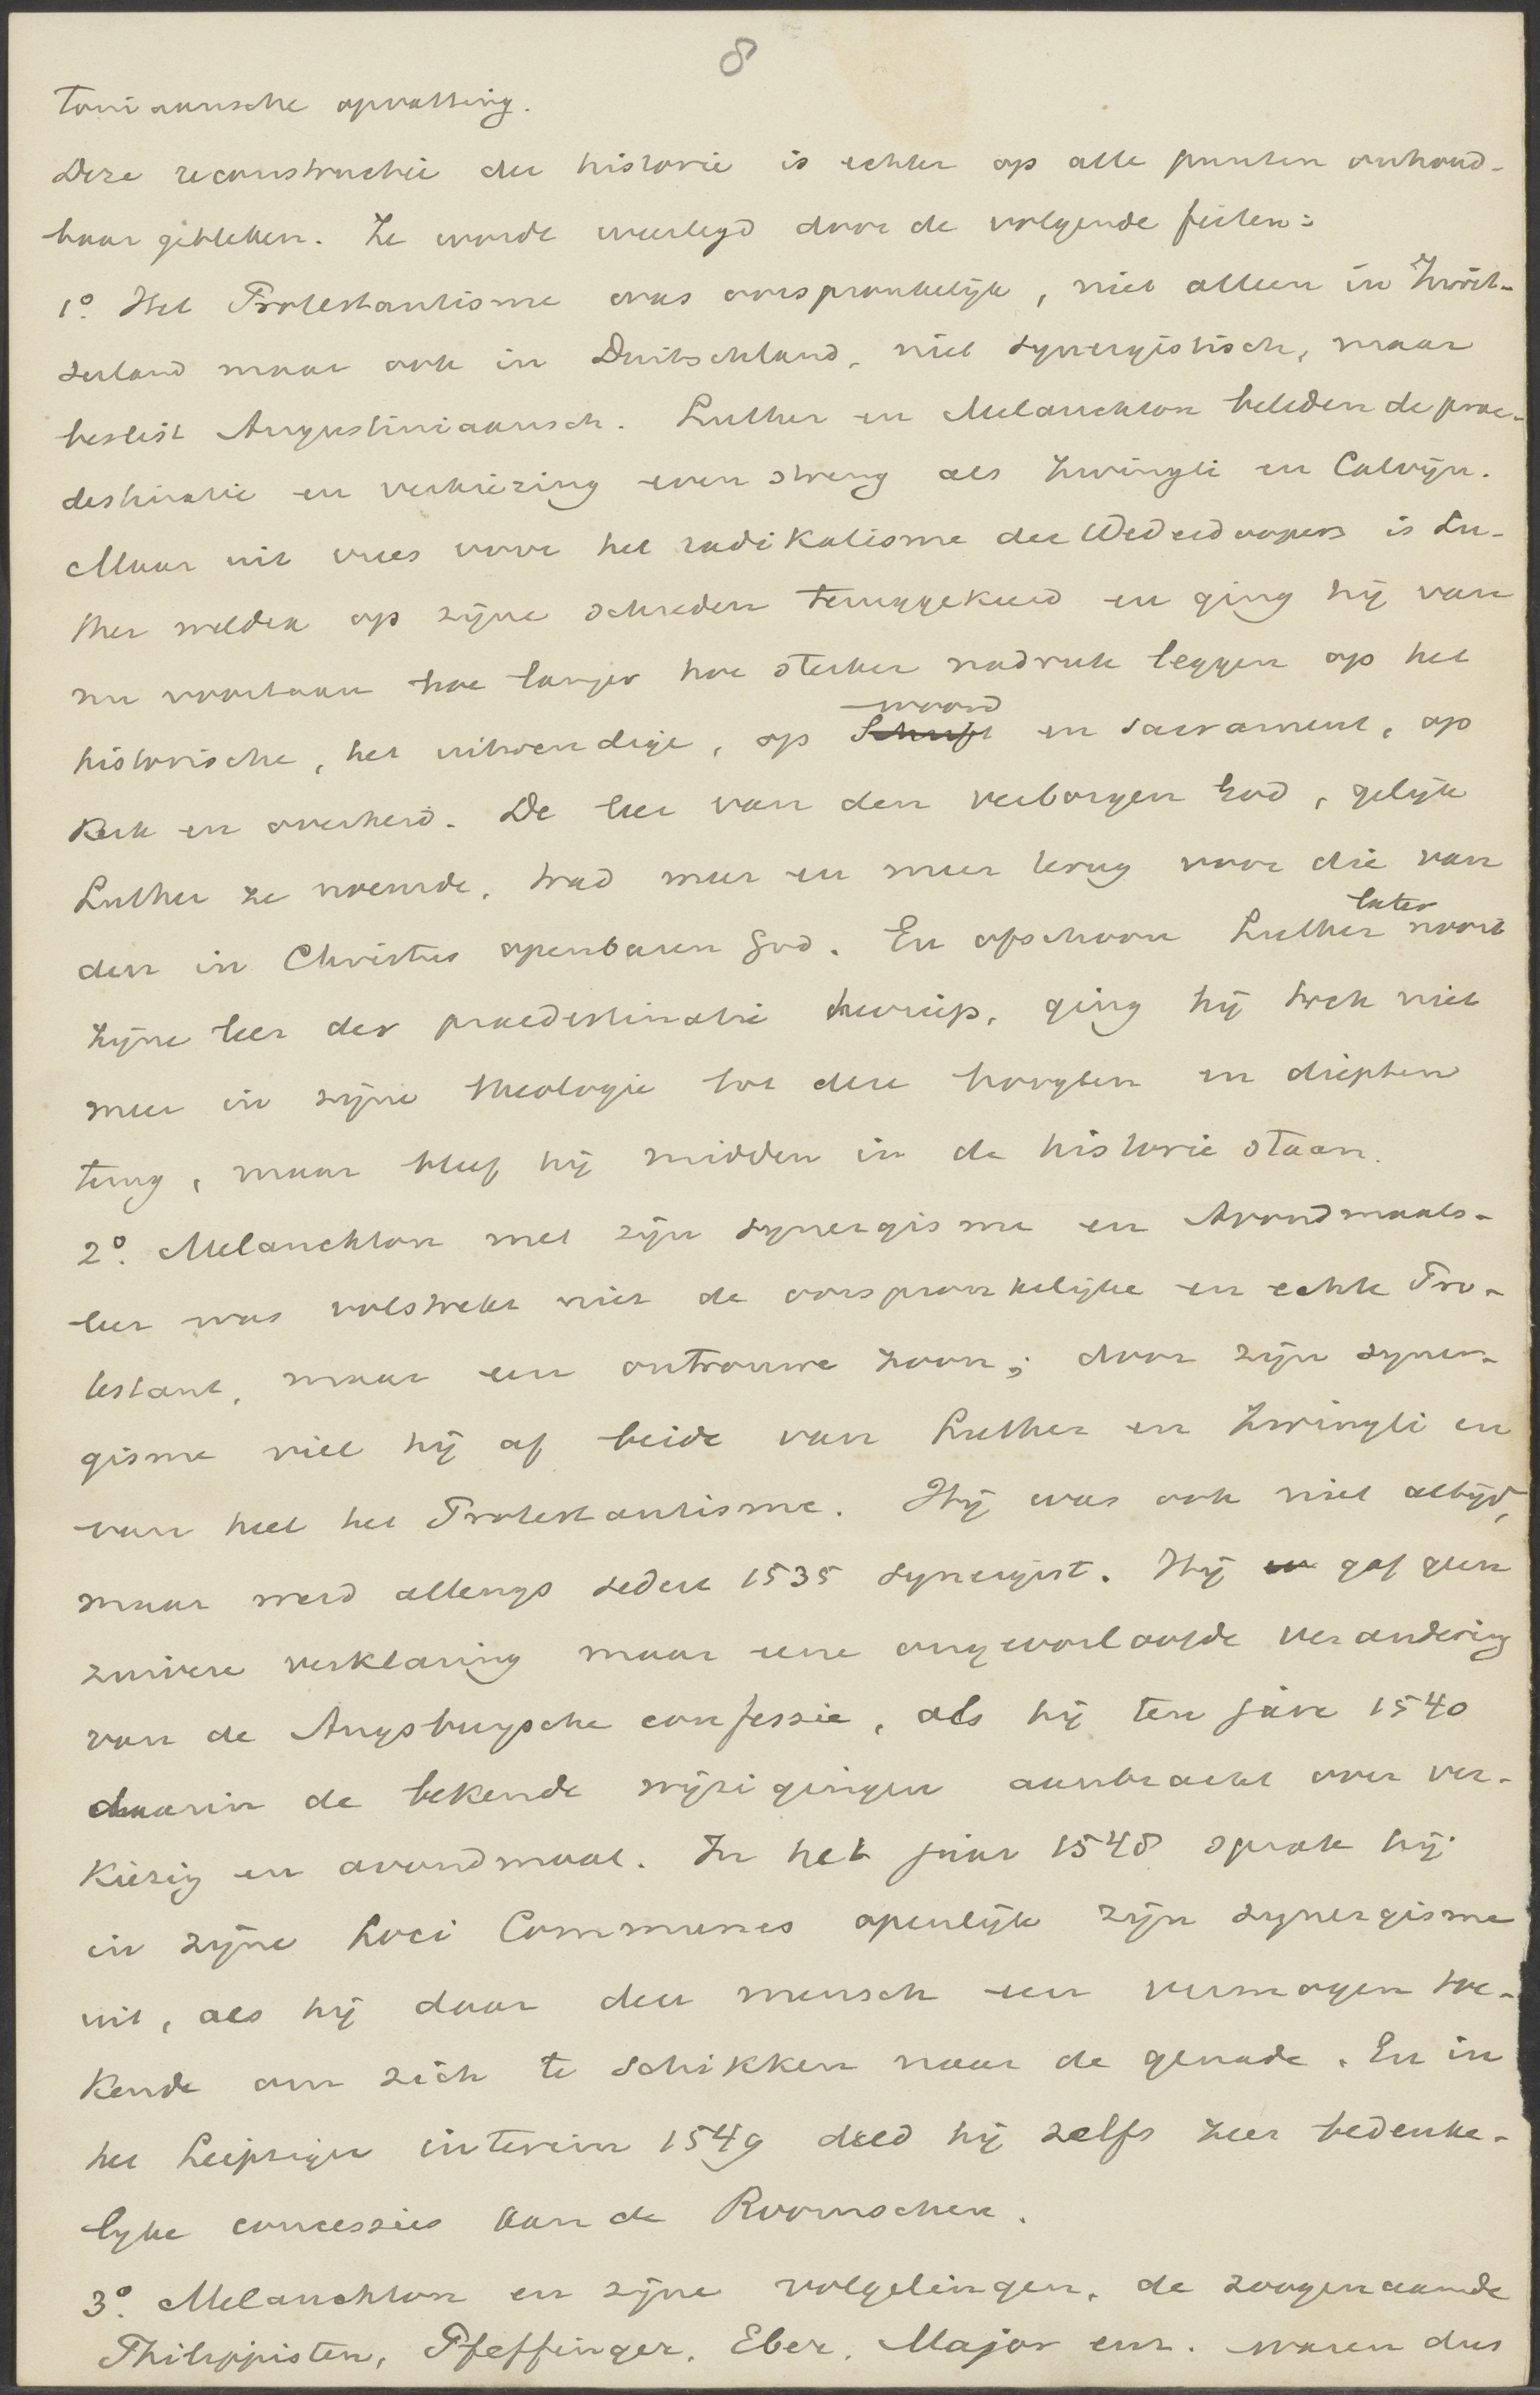 8
toniaansche opvatting.
Deze reconstructie der historie is echter op alle punten onhoud-
baar gebleken. Ze wordt weerlegd door de volgende feiten:
1º. Het Protestantisme was oorspronkelijk, niet alleen in Zwit-
serland maar ook in Duitschland, niet synergistisch, maar
beslist Augustiniaansch. Luther en Melanchton beleden de prae-
destinatie en verkiezing even streng als Zwingli en Calvijn.
Maar uit vrees voor het radikalisme der Wederdoopers is Lu-
ther weldra op zijne schreden teruggekeerd en ging hij van
nu voortaan hoe langer hoe sterker nadruk leggen op het
historische, het uitwendige, op woord en sacrament, op
Kerk en overheid. De leer van den verborgen God, gelijk
Luther ze noemde, trad meer en meer terug voor die van
den in Christus openbaren God. En ofschoon Luther later nooit
zijne leer der praedestinatie herriep, ging hij toch niet
meer in zijne theologie tot deze hoogten en diepten
terug, maar bleef hij midden in de historie staan.
2º. Melanchton met zijn synergisme en Avondmaals-
leer was volstrekt niet de oorspronkelijke en echte Pro-
testant, maar een ontrouwe zoon; door zijn syner-
gisme viel hij af beide van Luther en Zwingli en
van heel het Protestantisme. Hij was ook niet altijd,
maar werd allengs sedert 1535 synergist. Hij gaf geen
zuivere verklaring maar eene ongeoorloofde verandering
van de Augsburgsche confessie, als hij ten jare 1540
daarin de bekende wijzigingen aanbracht over ver-
kiezig en avondmaal. In het jaar 1548 sprak hij
in zijne Loci Communes openlijk zijn synergisme
uit, als hij daar den mensch een vermogen toe-
kende om zich te schikken naar de genade. En in
het Leipziger interim 1549 deed hij zelfs zeer bedenke-
lijke concessies aan de Roomschen.
3º. Melanchton en zijne volgelingen, de zoogenaamde
Philippisten, Pfeffinger, Eber, Major enz. waren dus